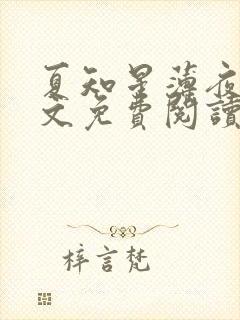 夏知星薄夜
文免費閱讀
梓言梵